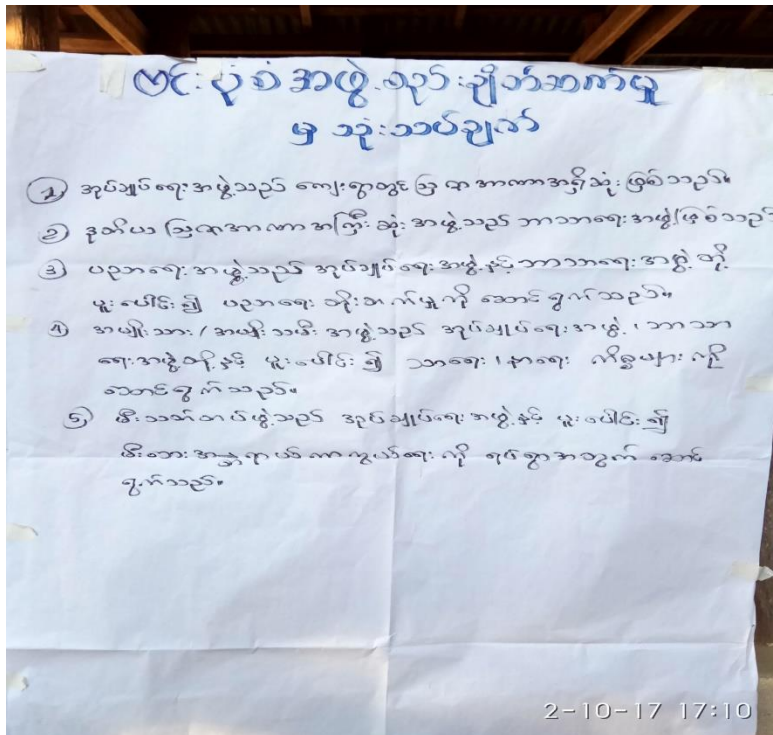 ဗင်းပုံစံအဖွဲ့သုင်းချိတ်ဆက်မှု
မှ သုံးသပ်ချက်
၁ အုပ်ချုပ်ရေးအဖွဲ့သည် ကျေးရွာတွင် သြဇာအာဏာအရှိဆုံး ဖြစ်သည်။
၂ ဒုတိယ သြဇာအာဏာအကြီးဆုံးအဖွဲ့သည် ဘာသာရေးအဖွဲ့ဖြစ်သည်
၃ ပညာရေးအဖွဲ့သည် အုပ်ချုပ်ရေးအဖွဲ့နှင့် ဘာသာရေးအဖွဲ့တို့
ပူးပေါင်း၍ ပညာရေး တိုးတက်မှုကို ဆောင်ရွက်သည်။
၄ အမျိုးသား/အမျိုးသမီး အဖွဲ့သည် အုပ်ချုပ်ရေးအဖွဲ့၊ ဘာသာ
ရေးအဖွဲ့တို့နှင့် ပူးပေါင်း၍ သာရေး၊ နာရေး ကိစ္စများကို
ဆောင်ရွက်သည်။
၅ မီးသတ်တပ်ဖွဲ့သည် အုပ်ချုပ်ရေးအဖွဲ့နှင့် ပူးပေါင်း၍
မီးဘေးအန္တရာယ်ကာကွယ်ရေးကို ရပ်ရွာအတွက် ဆောင်
ရွက်သည်။
2-10-17 17:10